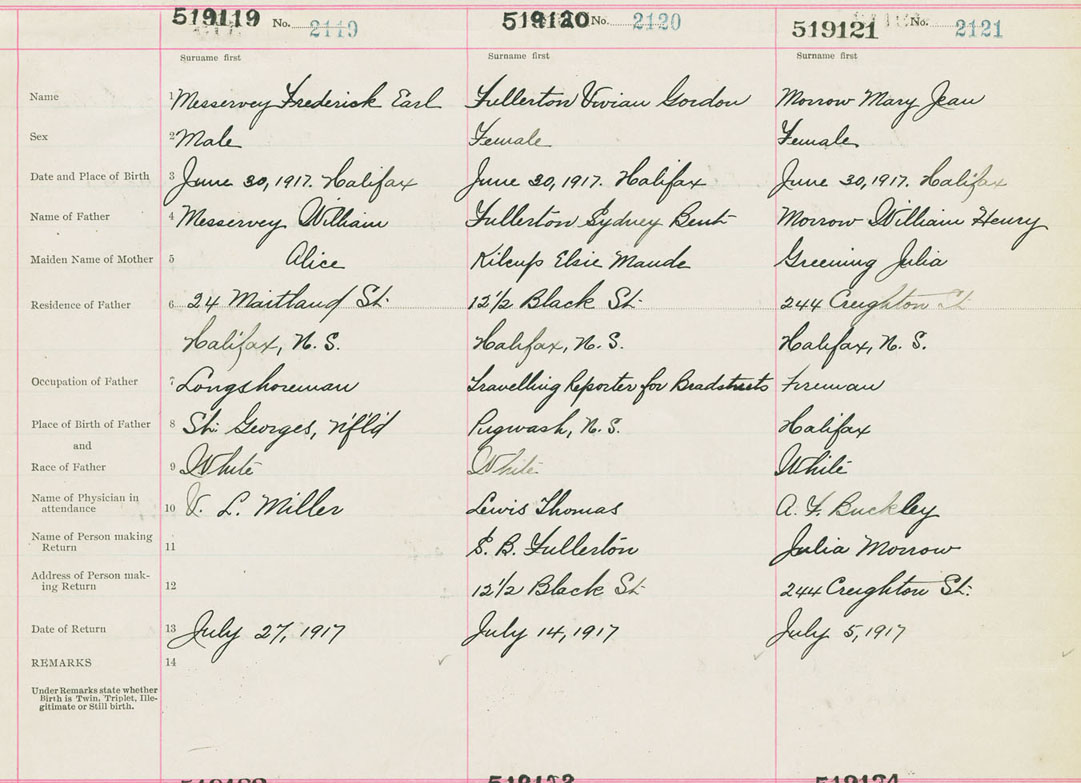 519119 No. 2119 519120 No. 2120 519121 No. 2121
Surname first Surname first Surname first
Name 1 Messervey Frederick Earl Fullerton Vivian Gordon Morrow Mary Jean
Sex 2 Male Female Female
Date and Place of Birth 3 June 30, 1917. Halifax June 30, 1917. Halifax June 30, 1917. Halifax
Name of Father 4 Messervey William Fullerton Sydney Bent Morrow William Henry
Maiden Name of Mother 5 Alice Kilcup Elsie Maude Greening Julia
Residence of Father 6 24 Maitland St. 12½ Black St. 244 Creighton St
Halifax, N. S. Halifax, N. S. Halifax, N. S.
Occupation of Father 7 Longshoreman Travelling Reporter for Bradstreets Fireman
Place of Birth of Father 8 St. Georges, Nf'l'd Pugwash, N. S. Halifax
and
Race of Father 9 White White White
Name of Physician in
attendance 10 V. L. Miller Lewis Thomas A. F. Buckley
Name of Person making
Return 11 S. B. Fullerton Julia Morrow
Address of Person mak-
ing Return 12 12½ Black St. 244 Creighton St.
Date of Return 13 July 27, 1917 July 14, 1917 July 5, 1917
REMARKS 14
Under Remarks state whether
Birth is Twin, Triplet, Ille-
gitimate or Still birth.